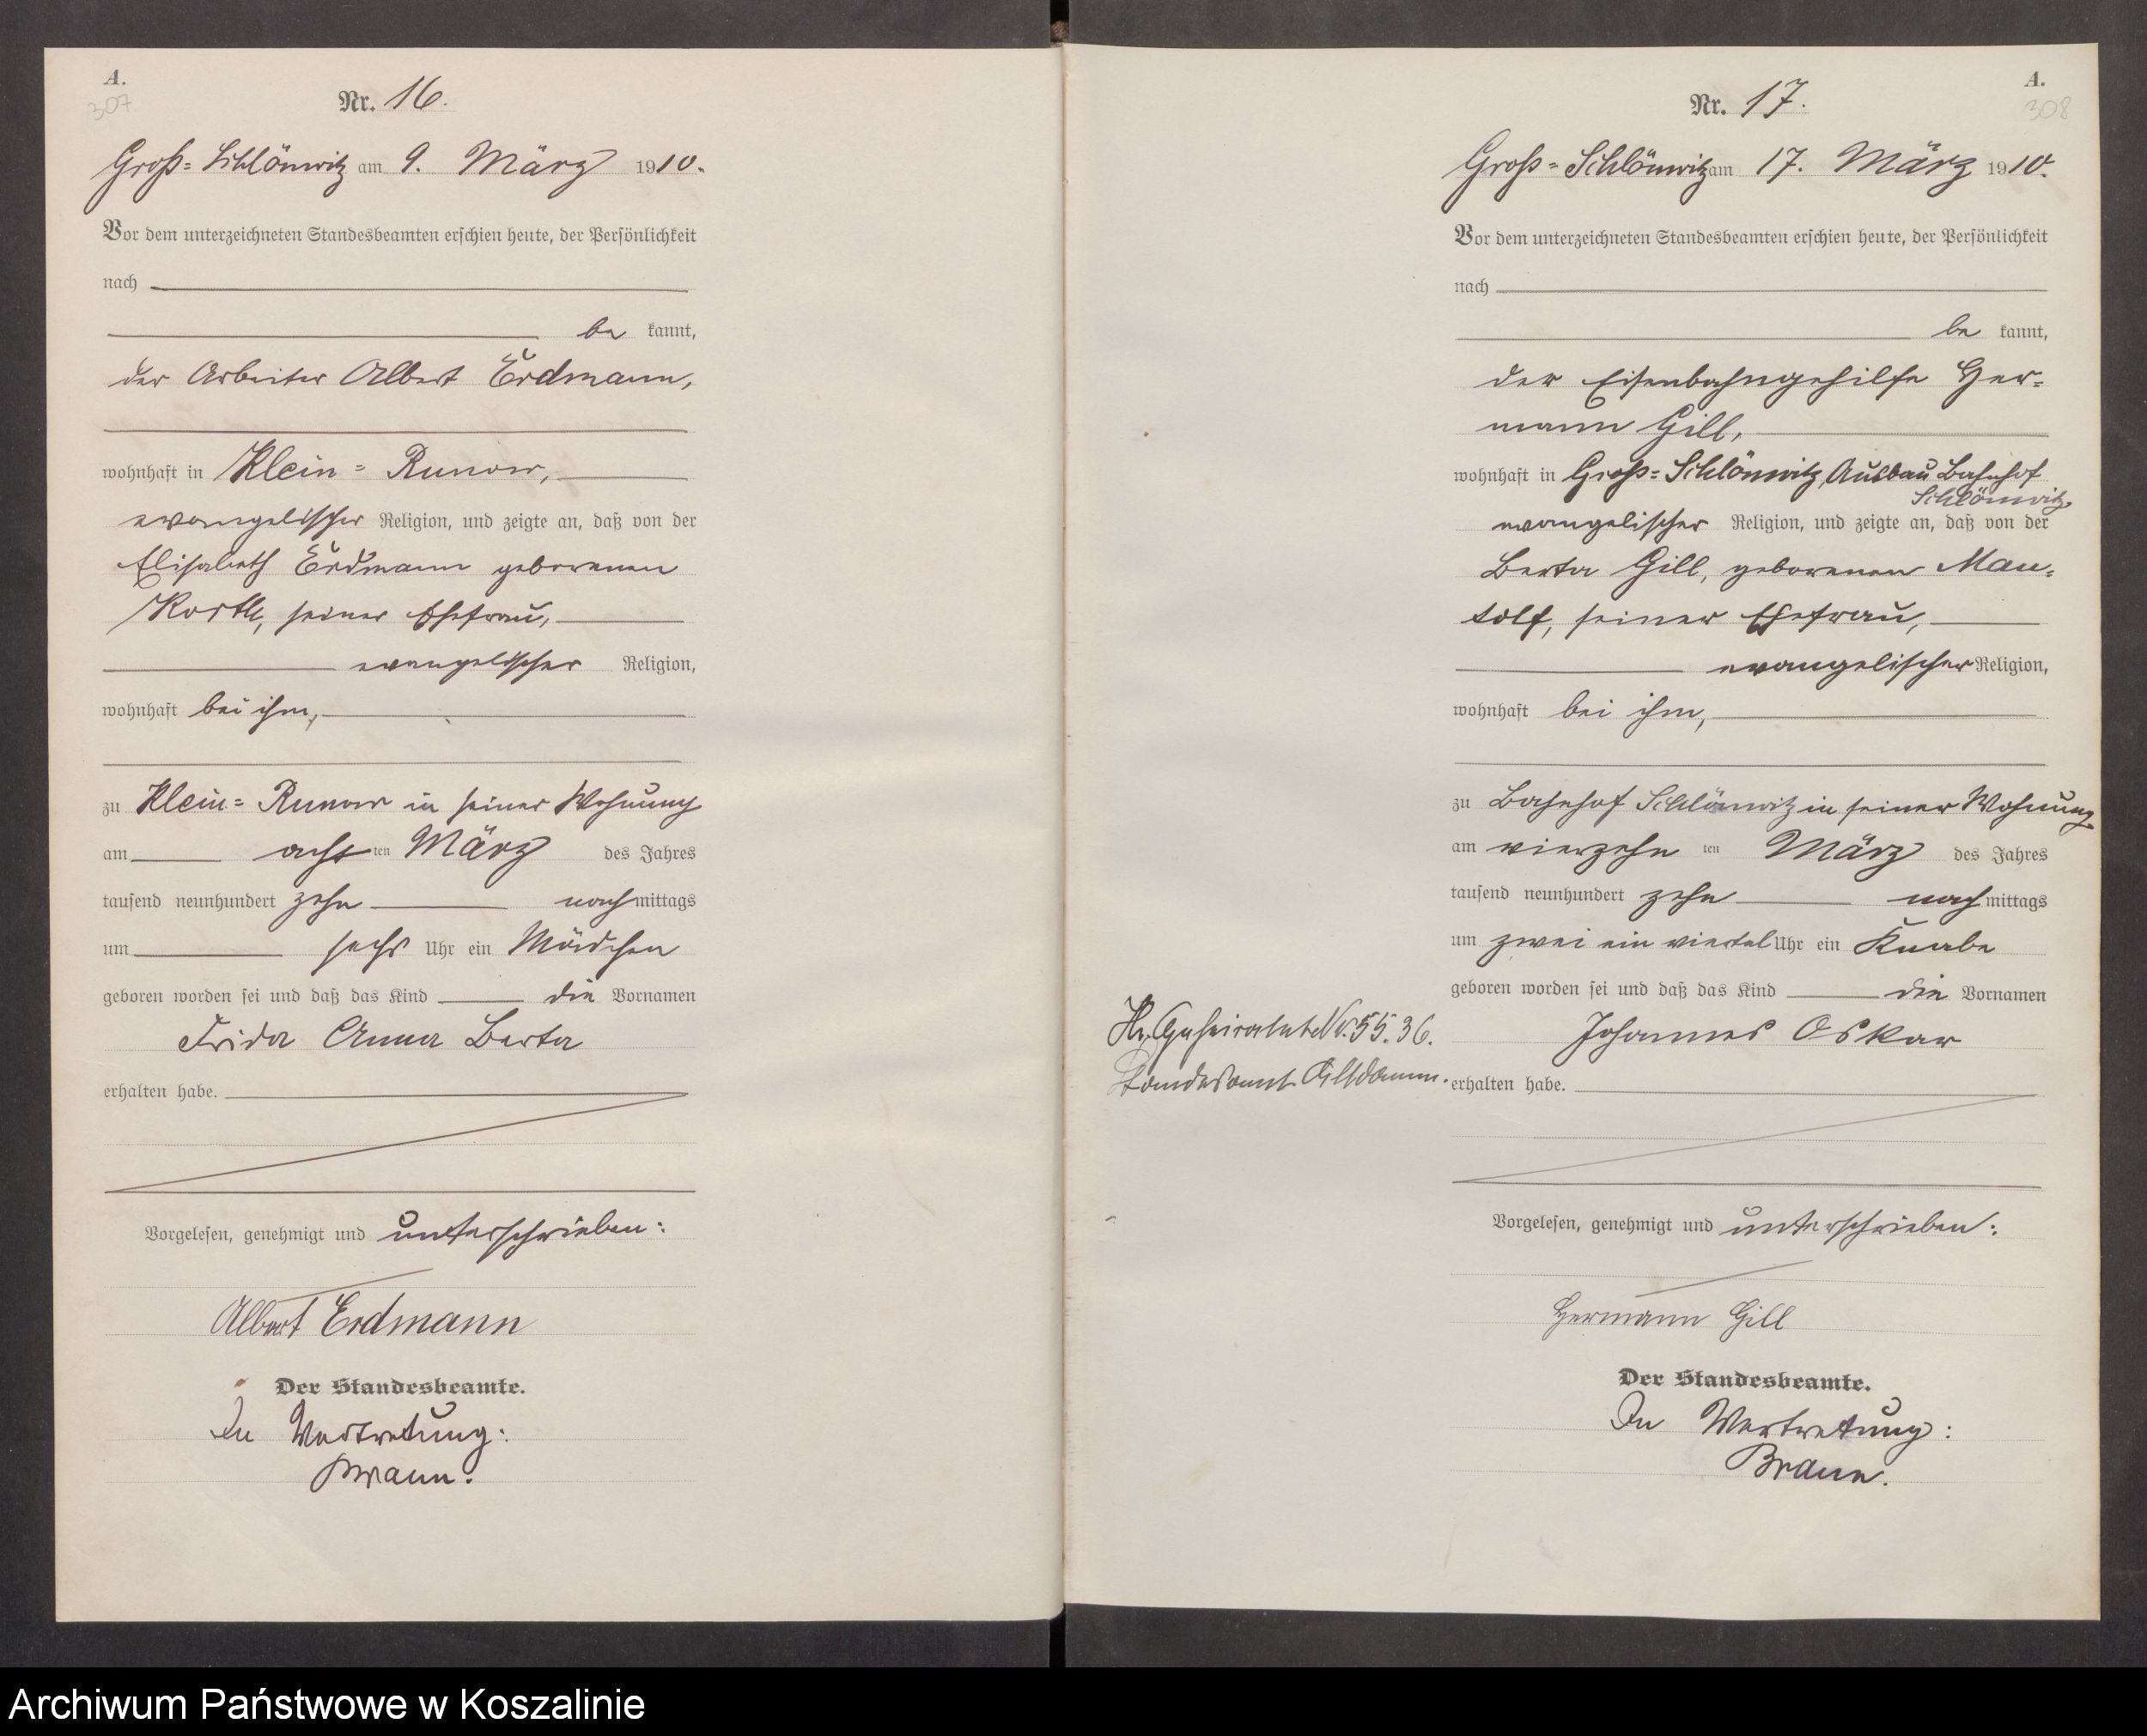 A.
307
Nr. 16.
Groß-Schlönwitz am 9. März 1910.
Vor dem unterzeichneten Standesbeamten erschien heute, der Persönlichkeit
nach
be kannt,
der Arbeiter Albert Erdmann,
wohnhaft in Klein-Runow,
evangelischer Religion, und zeigte an, daß von der
Elisabeth Erdmann geborenen
seiner Ehefrau,
evangelischer Religion,
wohnhaft bei ihm,
zu Klein-Runow in seiner Wohnung
am acht ten März des Jahres
tausend neunhundert zehn nach mittags
um sechs Uhr ein Mädchen
geboren worden sei und daß das Kind die Vornamen
Frida Anna Berta
erhalten habe.
Vorgelesen, genehmigt und unterschrieben:
Albert Erdmann
Der Standesbeamte.
In Vertretung:
Braun.
A.
308
Nr. 17.
Groß-Schlönwitz am 17. März 1910.
Vor dem unterzeichneten Standesbeamten erschien heute, der Persönlichkeit
nach
be kannt,
der Eisenbahngehilfe Her-
mann Gill,
wohnhaft in Groß-Schlönwitz, Ausbau Bahnhof
Schlönwitz
evangelischer Religion, und zeigte an, daß von der
Berta Gill, geborenen Man-
tolf, seiner Ehefrau,
evangelischer Religion,
wohnhaft bei ihm,
zu Bahnhof Schlönwitz in seiner Wohnung
am vierzehn ten März des Jahres
tausend neunhundert zehn nach mittags
um zwei ein viertel Uhr ein Knabe
geboren worden sei und daß das Kind die Vornamen
Johannes Oskar
Geheiratet Nr. 55.36.
Standesamt Altdamm.
erhalten habe.
Vorgelesen, genehmigt und unterschrieben:
Hermann Gill
Der Standesbeamte.
In Vertretung:
Braun.
Archiwum Państwowe w Koszalinie